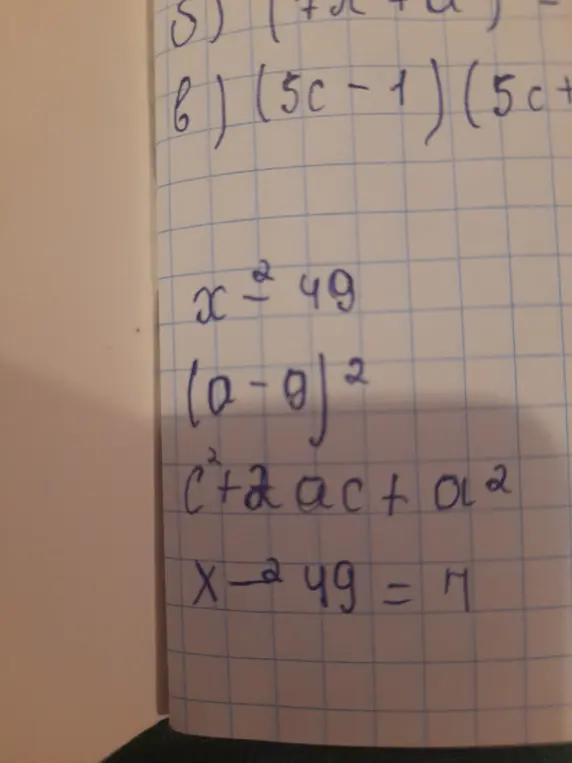 б) (7x + a) =
в) (5c - 1)(5c +
x² - 49
(a - 9)²
c² + 2ac + a²
x - ² 49 = 7